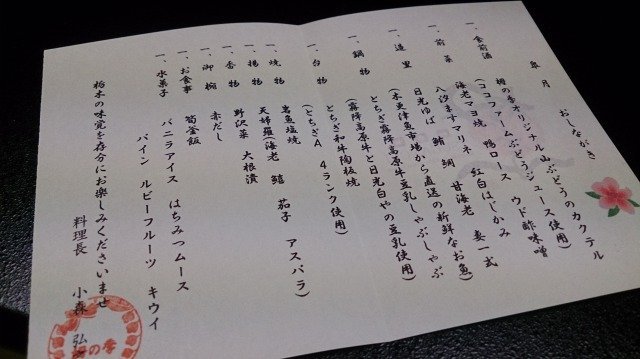 おしながき
皐月
一、食前酒 樹の季オリジナル山ぶどうのカクテル
(ココファームぶどうジュース使用)
一、前菜 海老マヨ焼 鴨ロース ウド酢味噌
八汐ますマリネ 紅白はじかみ
一、造里 日光ゆば 鮪 鯛 甘海老 妻一式
(木更津魚市場から直送の新鮮なお魚)
一、鍋物 とちぎ霧降高原牛豆乳しゃぶしゃぶ
(霧降高原牛と日光白やの豆乳使用)
一、台物 とちぎ和牛陶板焼
(とちぎA、4ランク使用)
一、焼物 岩魚塩焼
一、揚物 天婦羅(海老 鱚 茄子 アスパラ)
一、香物 野沢菜 大根漬
一、御椀 赤だし
一、お食事 筍釜飯
一、水菓子 バニラアイス はちみつムース
パイン ルビーフルーツ キウイ
栃木の味覚を存分にお楽しみくださいませ
料理長 小森 弘
の季